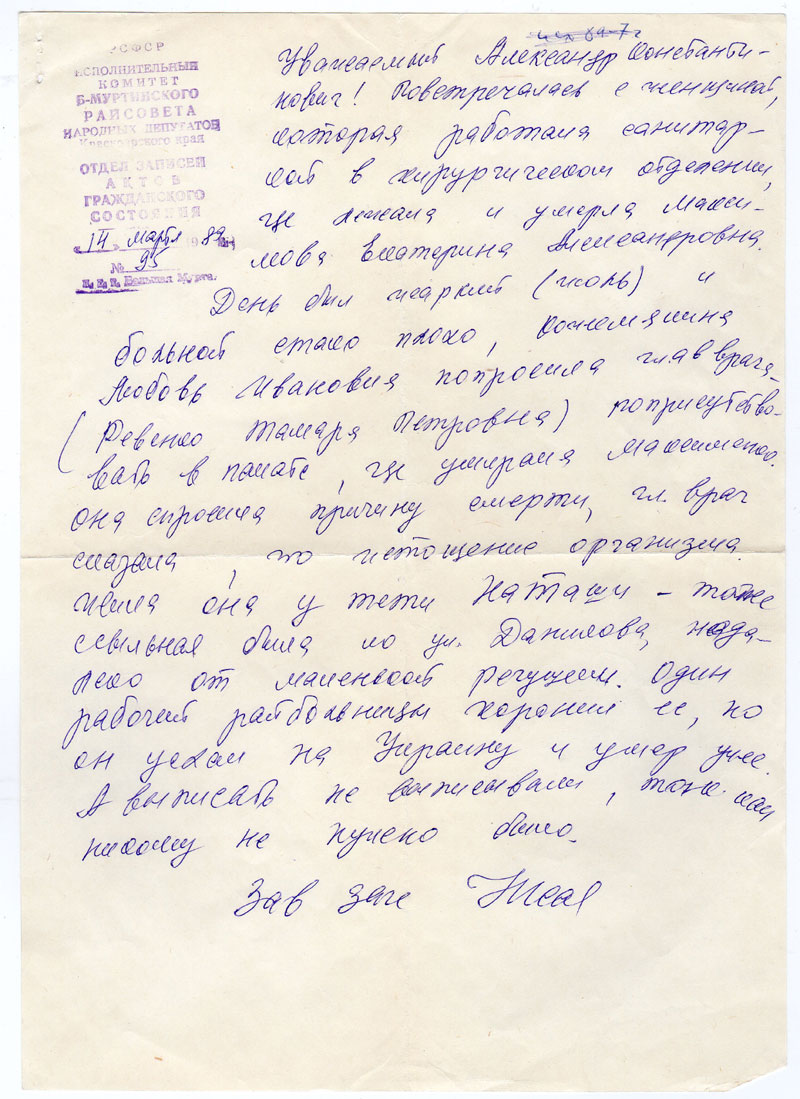 РСФСР
ИСПОЛНИТЕЛЬНЫЙ
КОМИТЕТ
Б-МУРТИНСКОГО
РАЙСОВЕТА
НАРОДНЫХ ДЕПУТАТОВ
Красноярского края
ОТДЕЛ ЗАПИСЕЙ
АКТОВ
ГРАЖДАНСКОГО
СОСТОЯНИЯ
"14" марта 1989 г.
№ 95
п. г. т. Большая Мурта.
Уважаемый Александр Константи-
нович! Повстречалась с женщиной,
которая работала санитар-
кой в хирургическом отделении,
где лежала и умерла Макси-
мова Екатерина Александровна.
День был жаркий (июль) и
больной стало плохо, Кожемякина
Любовь Ивановна попросила глав врача
(Ревенко Тамара Петровна) поприсутство-
вать в палате, где умирала
она спросила причину смерти, гл. врач
сказала, что истощение организма.
Жила она у тети Наташи - тоже
ссыльная была по ул. Данилова, неда-
леко от маленькой речушки. Один
рабочий райбольницы хоронил ее, но
он уехал на Украину и умер уже.
А выписать не выписывали, так как
никому не нужно было.
Зав загс